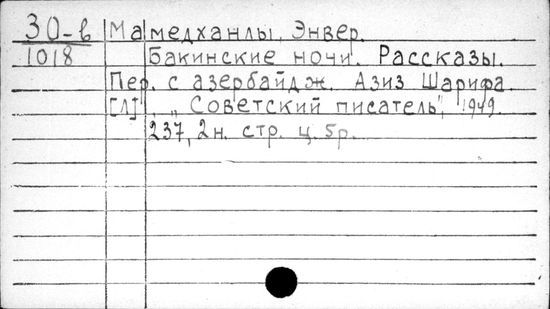 30-в Мамедханлы, Энвер.
1018 Бакинские ночи. Рассказы.
Пер. с азербайдж. Азиз Шарифа.
[Л], „Советский писатель", 1949.
237, 2 н. стр. ц. 5р.